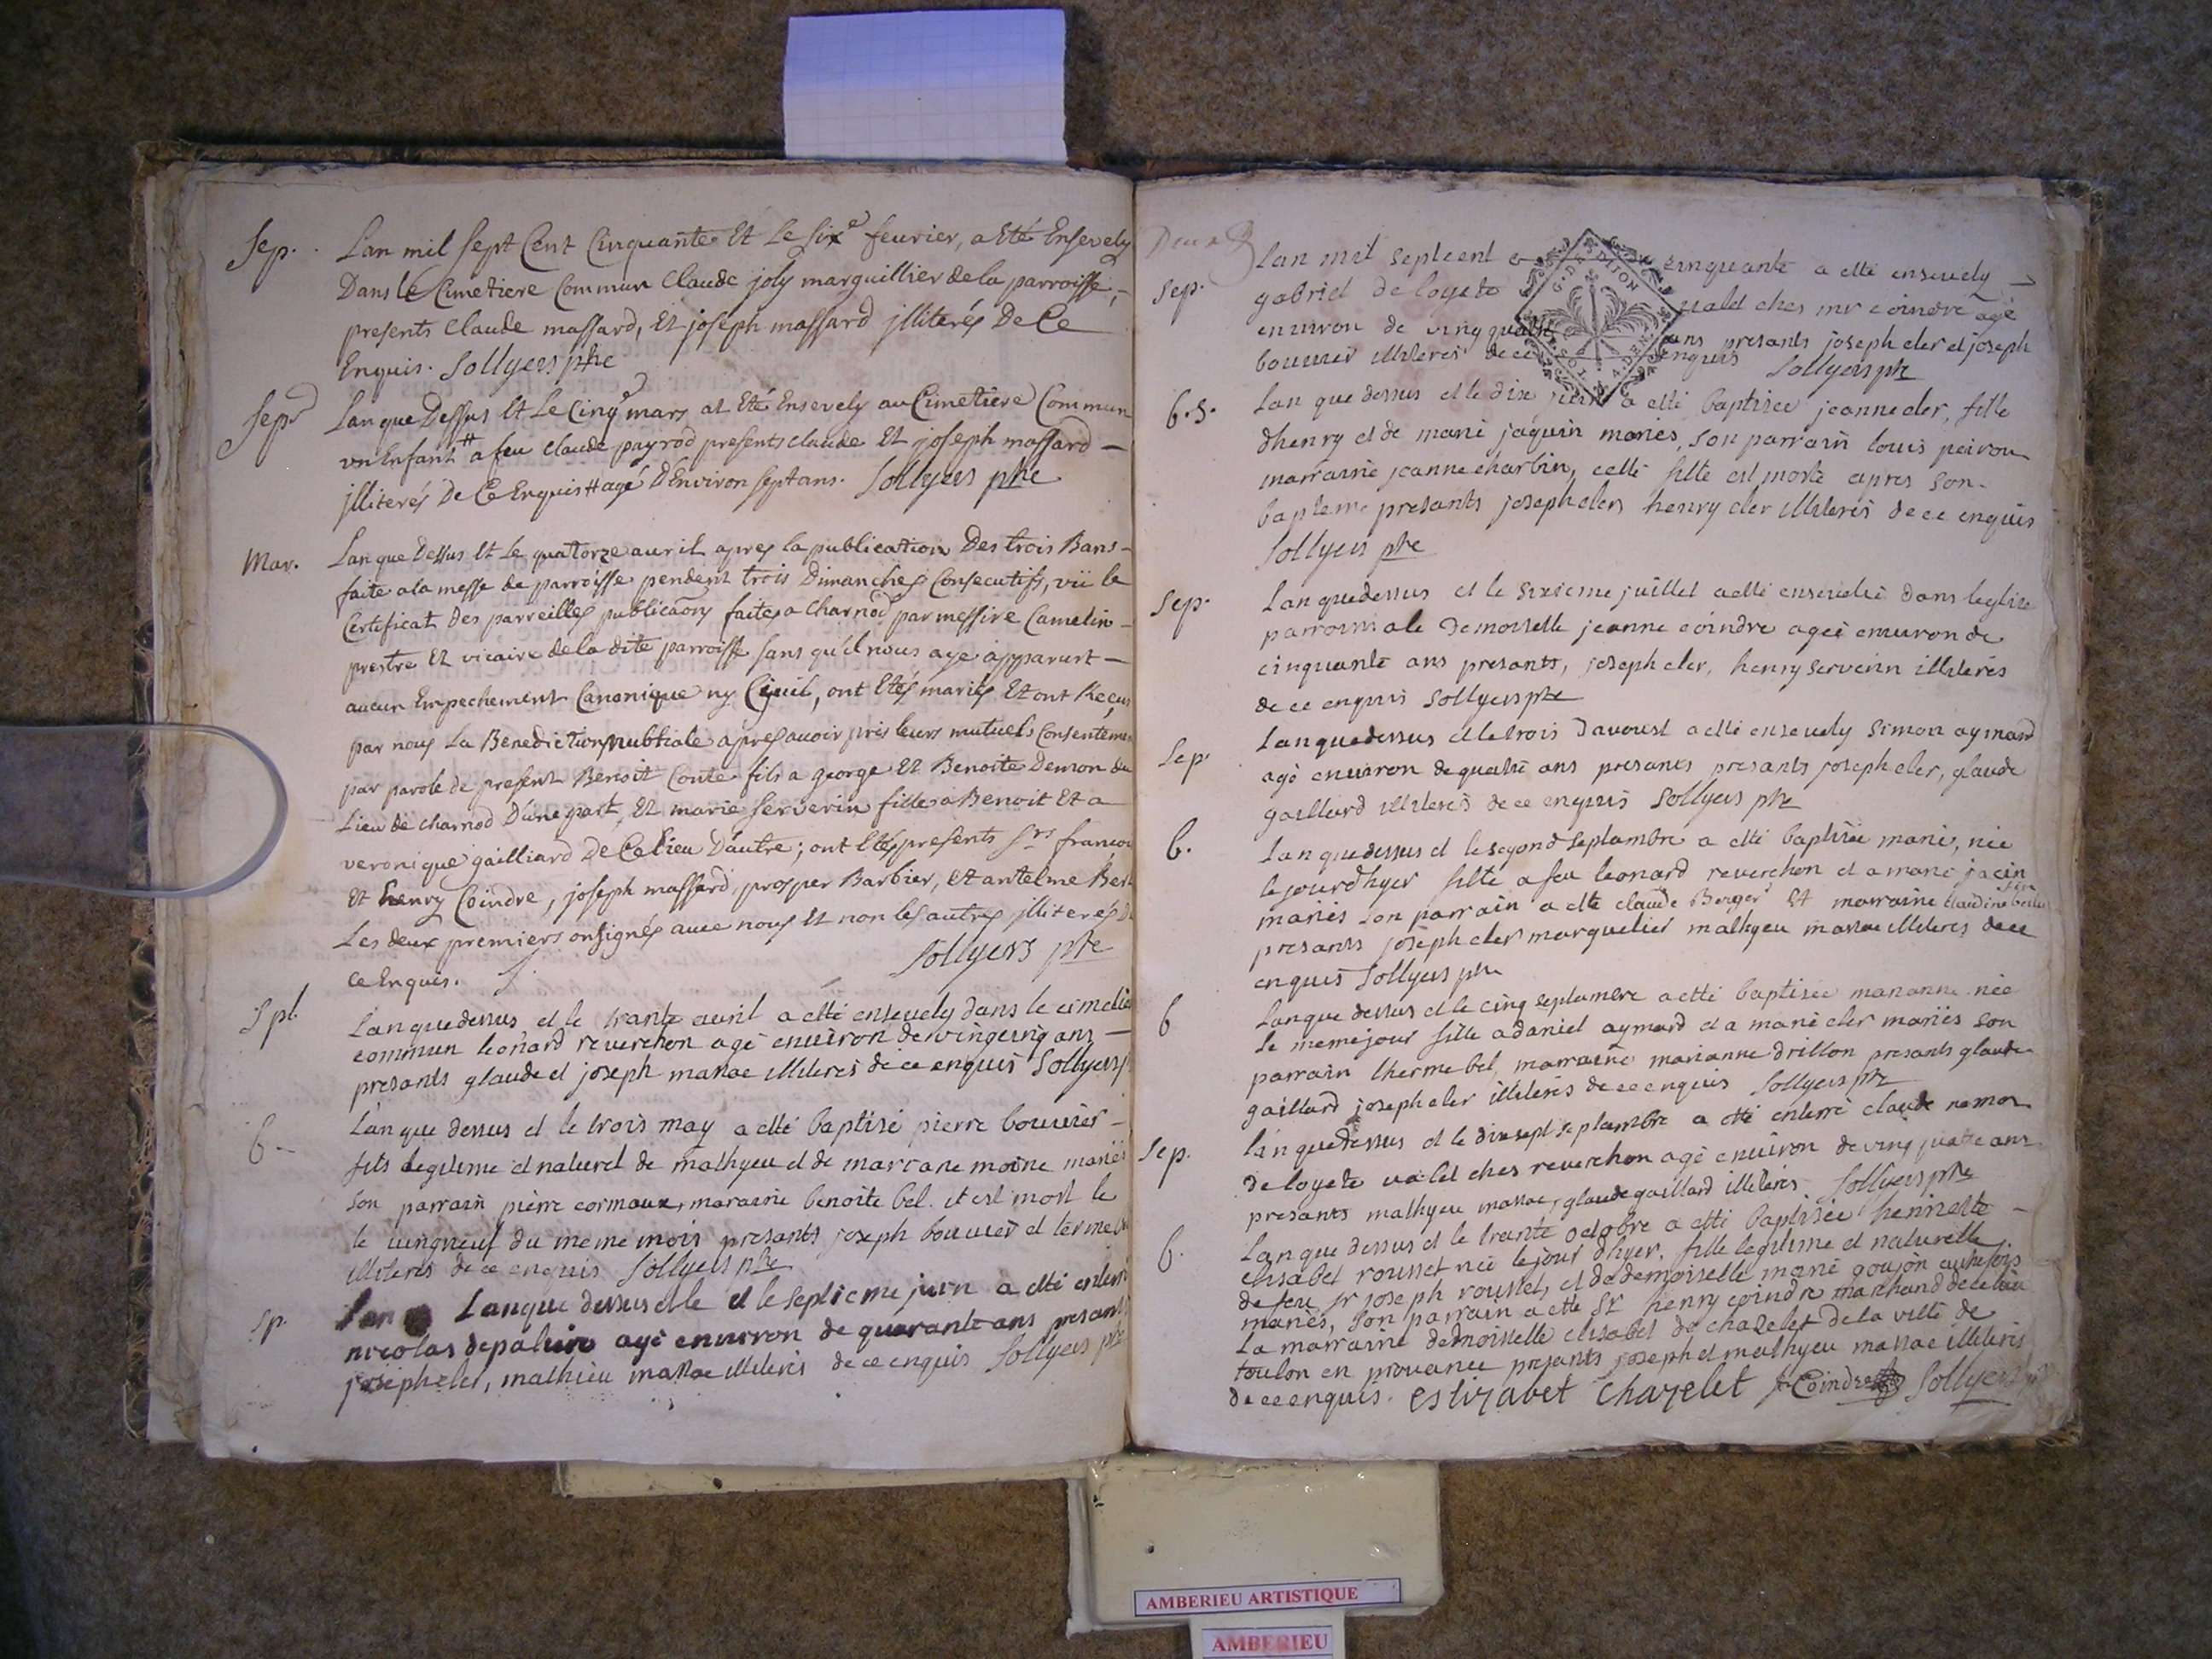 Sep. Lan mil sept Cent Cinquante Et Le Six.e feurier, a Eté Ensevely
Dans le Cimetiere Commun Claude joly marguillier de la parroisse,
presents Claude massard, Et joseph massard jlliterés De Ce
Enquis. Sollyers ptre
Sep. Lan que Dessus Et Le Cinq mars at Eté Ensevely au Cimetiere Commun
un Enfant # a feu Claude payrod presents claude Et joseph massard
jlliterés De Ce Enquis # agé D'Environ sept ans. Sollyers ptre
Mar. Lan que Dessus Et Le quatorze auril apres la publication Des trois Bans
faite a la messe de parroisse pendent trois Dimanches Consecutifs, vü le
Certificat Des parreilles publicaons faites a Charnod par messire Camelin
prestre Et vicaire de la dite parroisse sans qu'il nous aye apparust
aucun Empechement Canonique ny Ciuil, ont Etés mariés Et ont Recus
par nous La Benediction nubtiale apres auoir pris leurs mutuels Consenteme
par parole de present Benoit Conte fils a george Et Benoite Demon du
Lieu de charnod D'une part, Et marie serverin fille a Benoit Et a
veronique gailliard De Ce Lieu D'autre; ont Etés presents Srs francoi
Et henry Coindre, joseph massard, prosper Barbier, Et antelme Ber
Les deux premiers on signés avec nous Et non les autres jlliterés De
ce Enquis. Sollyers ptre
Spl. Lan que dessus et le trante auril a etté ensevely dans le cimetie
commun leonard reverchon agé enuiron de vingcinq ans
presants glaude et joseph massae illiterés de ce enquis Sollyers p
b. Lan que dessus et le trois may a etté baptisé pierre bouuier
fils legitime et naturel de mathyeu et de marrane moine mariés
son parrain pierre cormaux, maraine benoite bel. et est mort le
le vingneuf du meme mois presants joseph bouuier et terme
illiterés de ce enquis Sollyers ptre
Sp. Lan Lan que dessus et le et le septieme juin a etté enterré
nicolas depaluire agé enuiron de quarante ans presants
joseph cler, mathieu massae illiterés de ce enquis Sollyers ptre
Lan mil septcent cinquante a etté ensevely
Sep. gabriel de loyete valet ches mr coindre agé
enuiron de ving quatre ans presants joseph cler et joseph
bouuier illiterés de ce enquis Sollyers ptr
G. DE DIJON
b.s. Lan que dessus et le dix juin a etté baptisée jeanne cler, fille
dhenry et de marie jaquin mariés, son parrain louis peirou
marraine jeanne charbin, cette fille est morte apres son
bapteme presants joseph cler, henry cler illiterés de ce enquis
Sollyers ptre
Sep. Lan que dessus et le sixieme juillet a etté ensevelie dans leglise
parroissiale Demoiselle jeanne coindre ageé enuiron de
cinquante ans presants, joseph cler, henry serverin illiterés
de ce enquis Sollyers ptre
Sep. Lan que dessus et le trois Davoust a etté ensevely Simon aymard
agé enuiron de quatre ans presants presants joseph cler, glaude
gaillard illiterés de ce enquis Sollyers ptr
b. Lan que dessus et le segond septambre a etté baptisée marie, née
le jourdhyer fille a feu leonard reverchon et a marie jacin
mariés son parrain a etté claude Berger Et marraine Claudine
presants joseph cler marguelier mathyeu massae illiterés de ce
enquis Sollyers ptr
b Lan que dessus et le cinq septambre a etté baptisée marianne née
le meme jour fille a daniel aymard et a marie cler mariés son
parrain therme bel, marraine marianne drillon presants glaude
gaillard joseph cler illiterés de ce enquis Sollyers ptr
Sep. Lan que dessus et le dixsept septambre a etté enterré claude ramon
de loyete valet ches reverchon agé enuiron de ving quatre ans
presants mathyeu massae, glaude gaillard illiterés Sollyers ptre
b. Lan que dessus et le trante octobre a etté baptisée henriette
elisabet rousset née le jour dhyer, fille legitime et naturelle
de feu sr joseph rousset, et de demoiselle marie goujon autrefois
mariés, son parrain a etté Sr henry coindre marchand de ce lieu
La marraine demoiselle elisabet de chazelet de la ville de
toulon en provance presants joseph et mathyeu massae illiterés
de ce enquis. eslizabet Chazelet Coindre Sollyers
AMBERIEU ARTISTIQUE
AMBERIEU